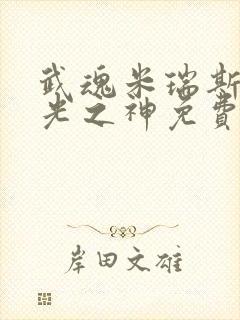 武魂米瑞斯
光之神免費
岸田文雄